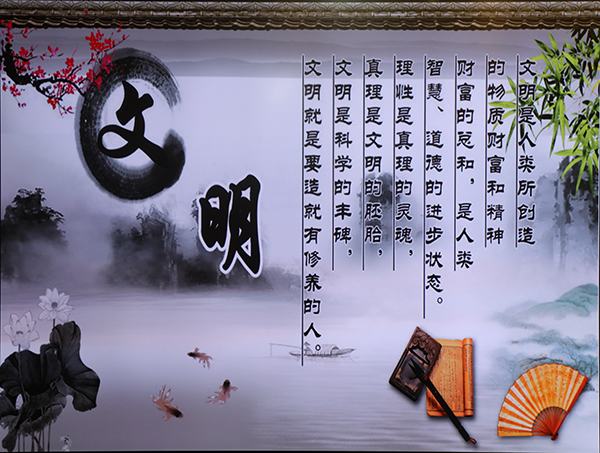 文明
文明是人类所创造
的物质财富和精神
财富的总和，是人类
智慧、道德的进步状态。
理性是真理的灵魂，
真理是文明的胚胎，
文明是科学的丰碑，
文明就是要造就有修养的人。